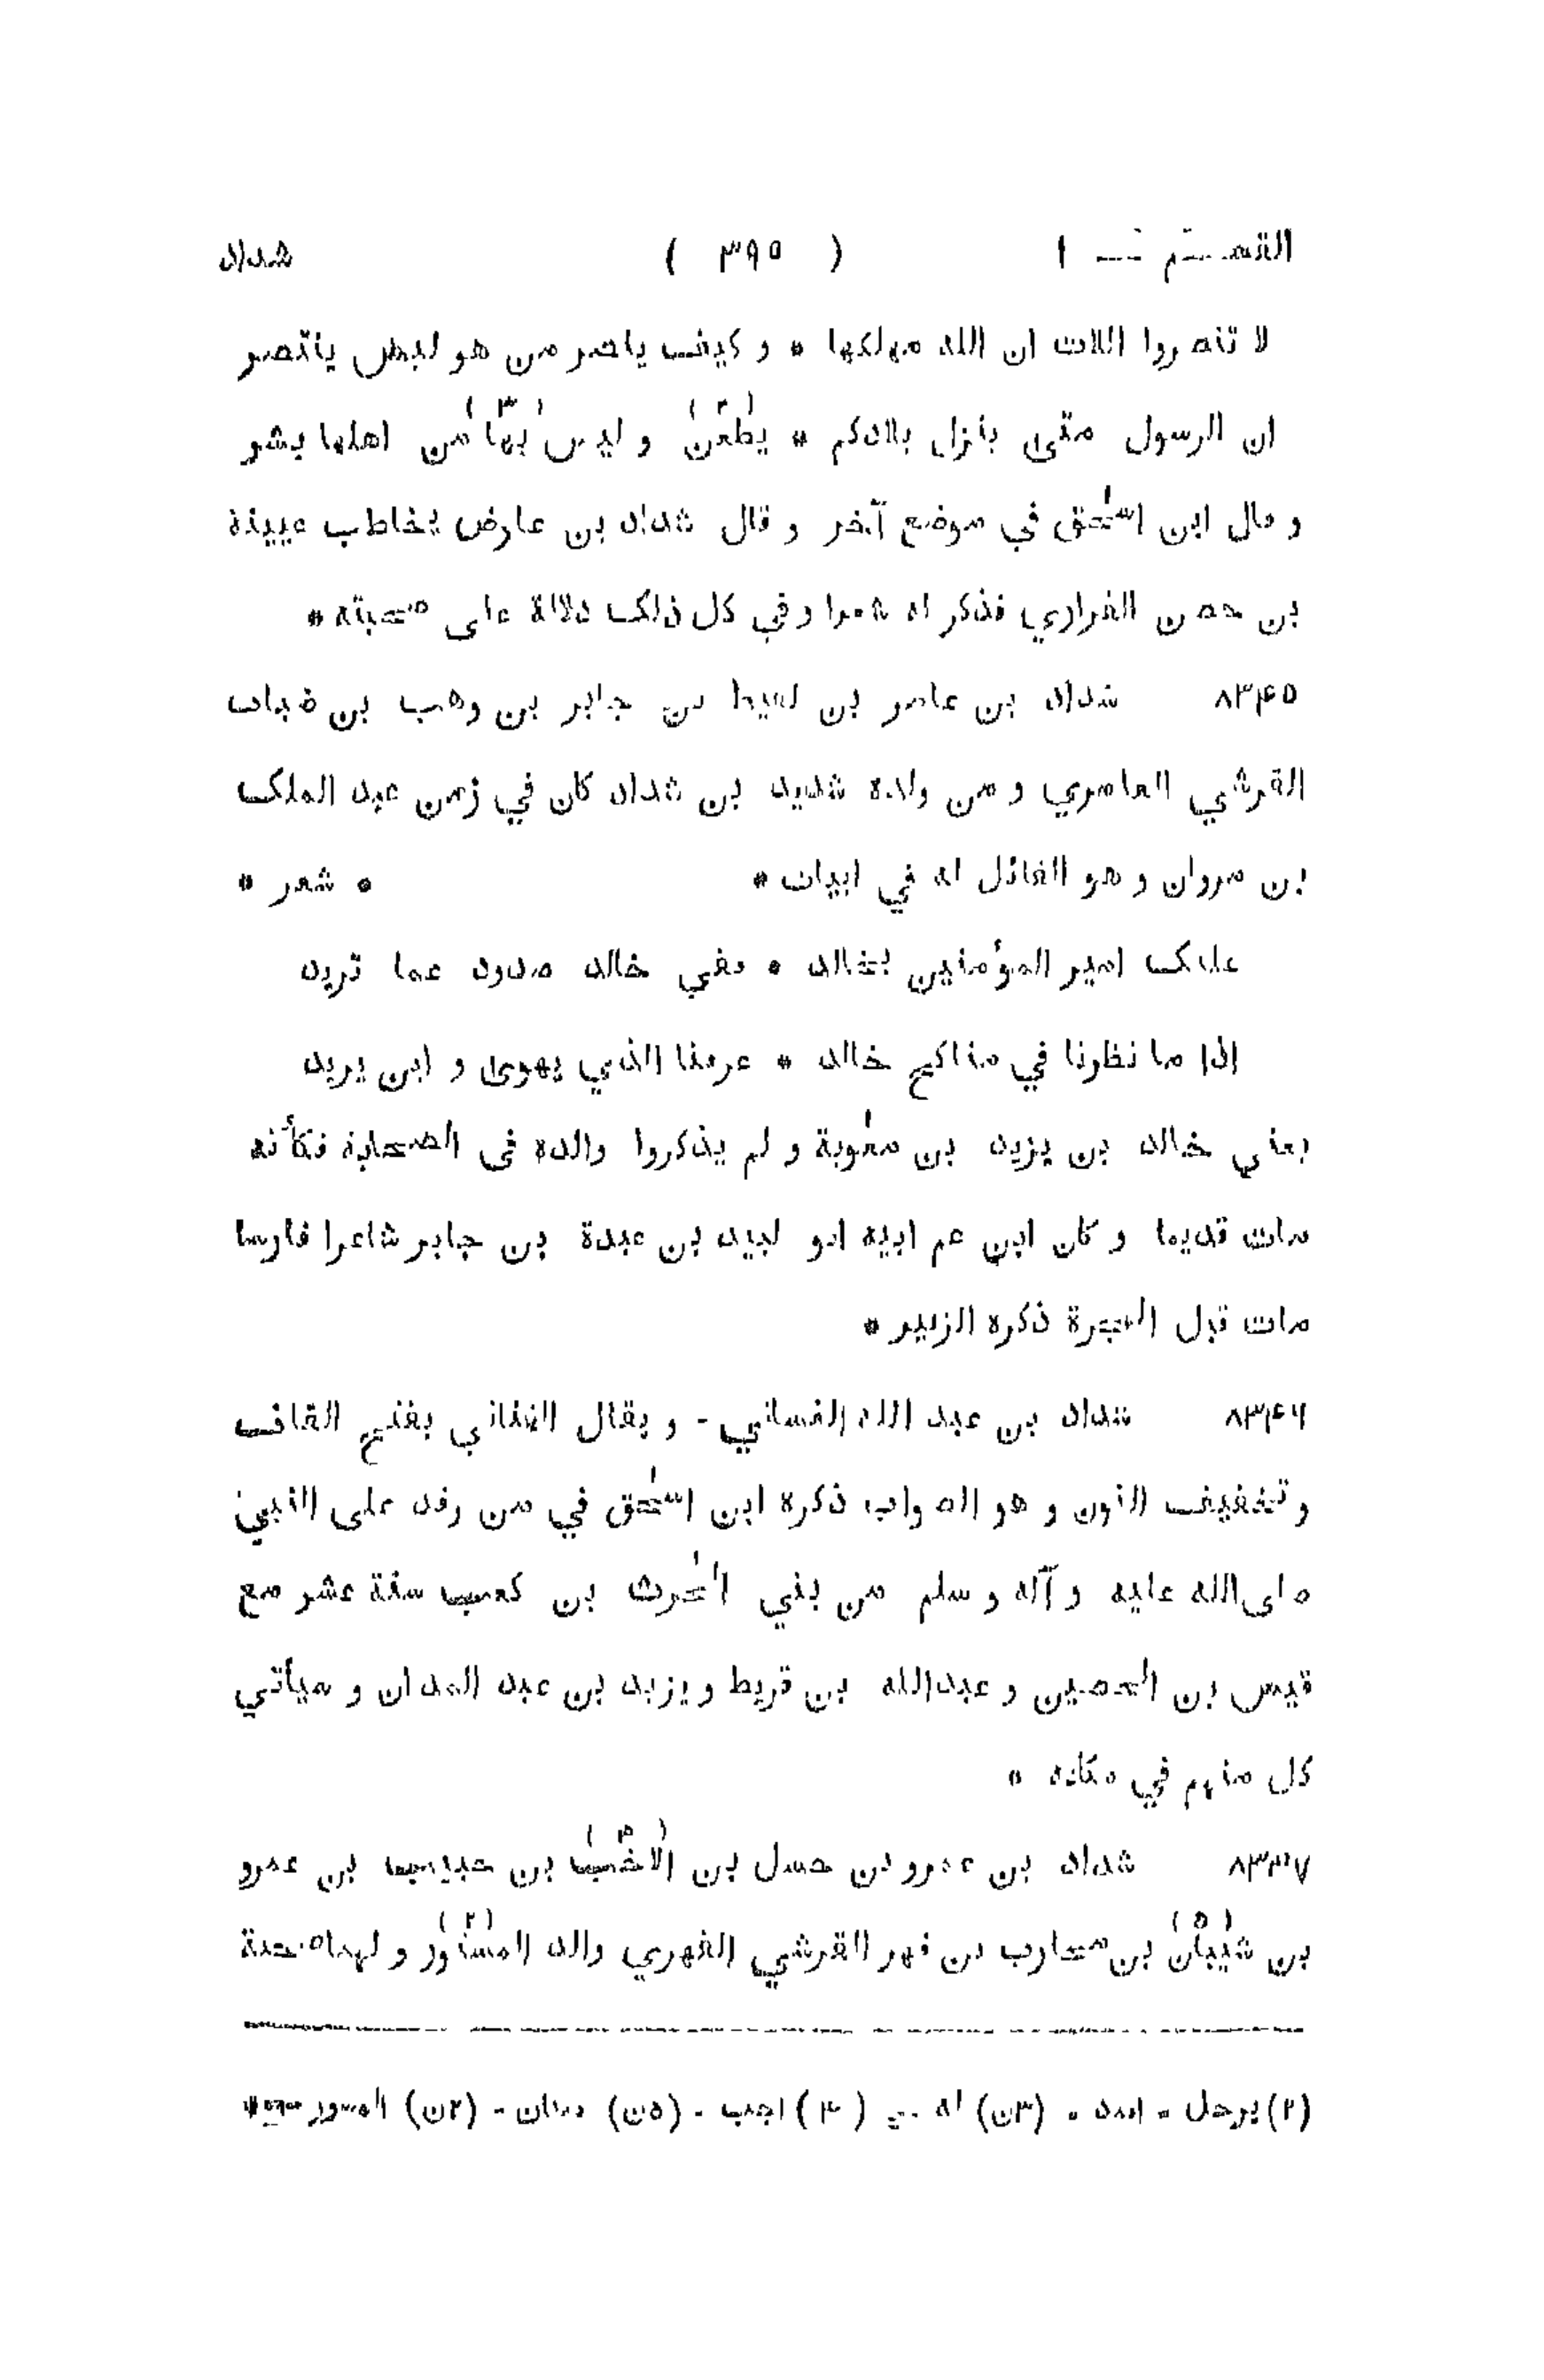 القسم ــ ا ( ٣٩٥ ) شداد
لا تنصروا اللات ان الله مهلكها * و كيف ينصر من هو ليس ينتصر
ان الرسول متى ينزل بلادكم * يظعن (٢) و ليس بها (٣) من اهلها بشر
و قال ابن اسحٰق في موضع آخر و قال شداد بن عارض يخاطب عيينة
بن حصن الفزاري فذكر له شعرا و في كل ذلك دلالة على صحبته *
٨٣٤٥ شداد بن عامر بن لقيط بن جابر بن وهب بن ضباب
القرشي العامري و من ولده شديد بن شداد كان في زمن عبد الملك
بن مروان و هو القائل له في ابيات * * شعر *
عليك امير المؤمنين بخالد * ففي خالد صدود عما تريد
اذا ما نظرنا في مناكح خالد * عرفنا الذي يهوى و اين يريد
يعني خالد بن يزيد بن معٰوية و لم يذكروا والده في الصحابة فكأنه
مات قديما و كان ابن عم ابيه ابو لبيد بن عبدة بن جابر شاعرا فارسا
مات قبل الهجرة ذكره الزبير *
٨٣٤٦ شداد بن عبد الله الغساني - و يقال القناني بفتح القاف
و تخفيف النون و هو الصواب ذكره ابن اسحٰق في من وفد على النبي
صلى الله عليه و آله و سلم من بني الحٰرث بن كعب سنة عشر مع
قيس بن الحصين و عبدالله بن قريط و يزيد بن عبد المدان و سيأتي
كل منهم في مكانه *
٨٣٤٧ شداد بن عمرو بن حسل بن الاخب (٤) بن حبيب بن عمرو
بن شيبان (٥) بن محارب بن فهر القرشي الفهري والد المستورد (٢) و لهما صحبة
(٢) يرحل - (٣ن) له (٤) اجب - (٥ن) (٢ن)